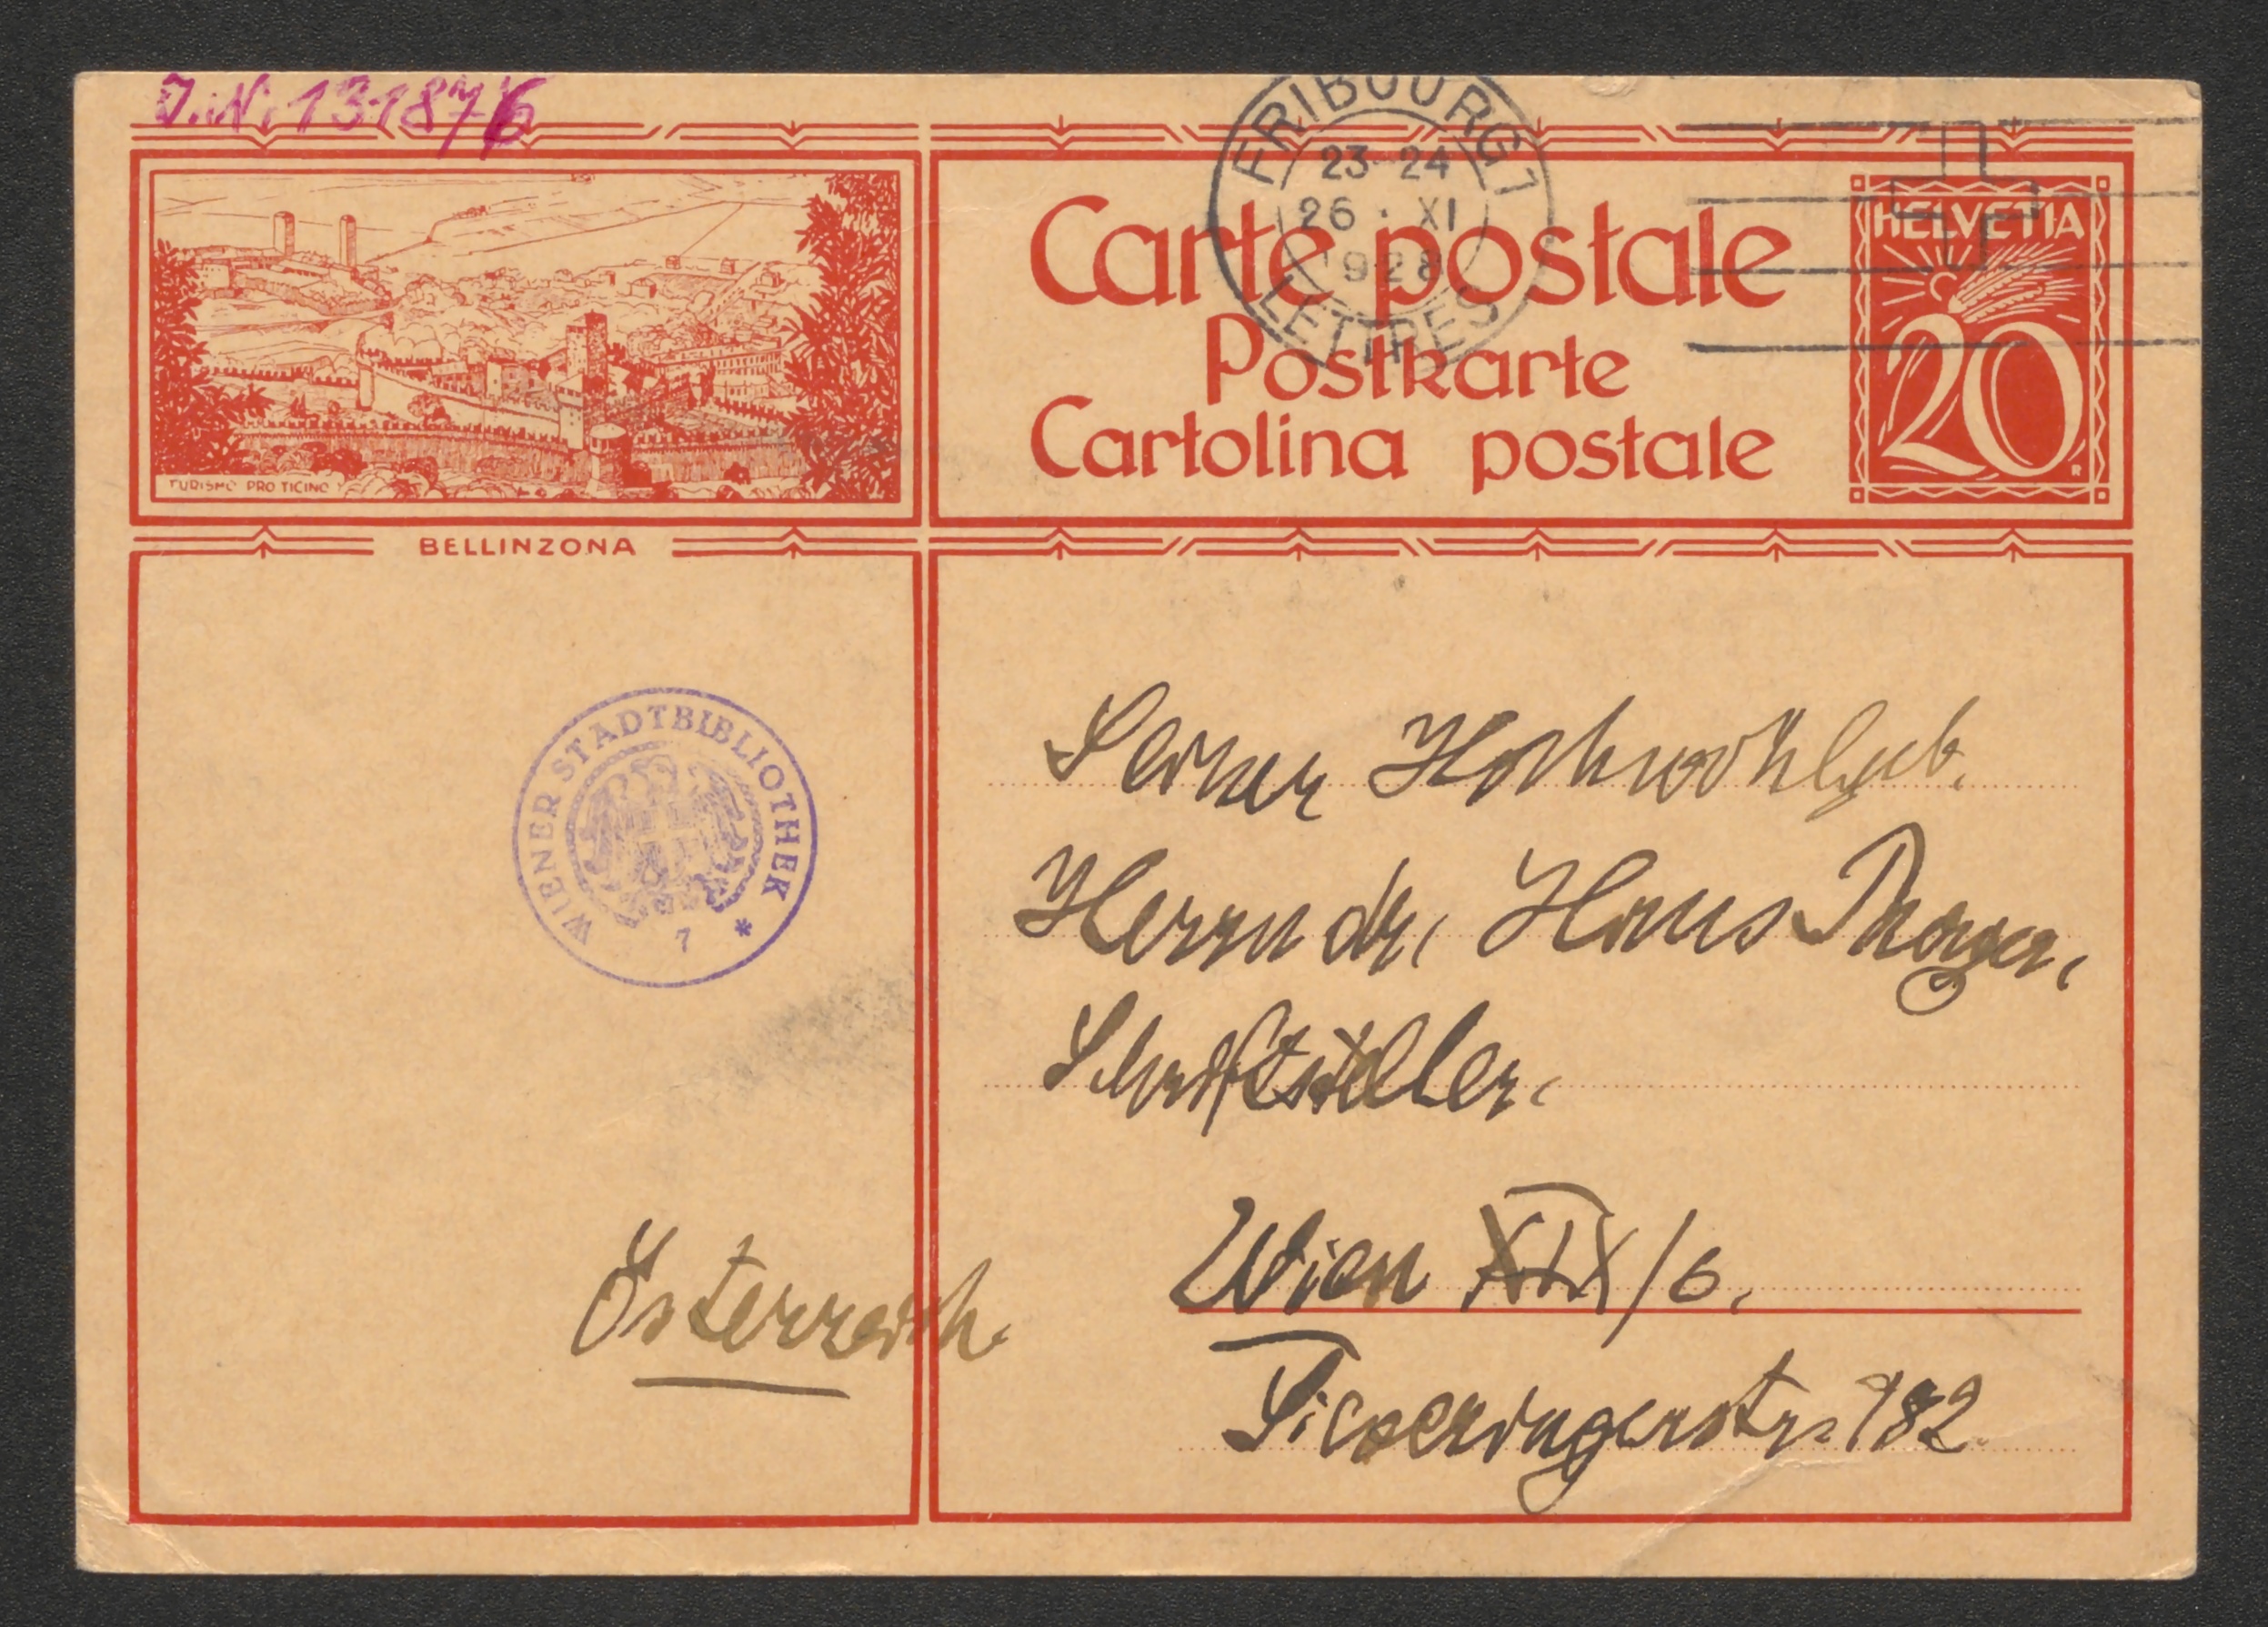 J.N. 131876
FRIBOURG 1
23-24
26 · XI
1928
LETTRES
Carte postale
Postkarte
Cartolina postale
HELVETIA
20
TURISMO PRO TICINO
BELLINZONA
WIENER STADTBIBLIOTHEK *
7
Seiner Hochwohlgeb.
Herrn dr. Hans Prager,
Schriftsteller.
Wien XIX/6.
Österreich.
Sieveringerstr. 182